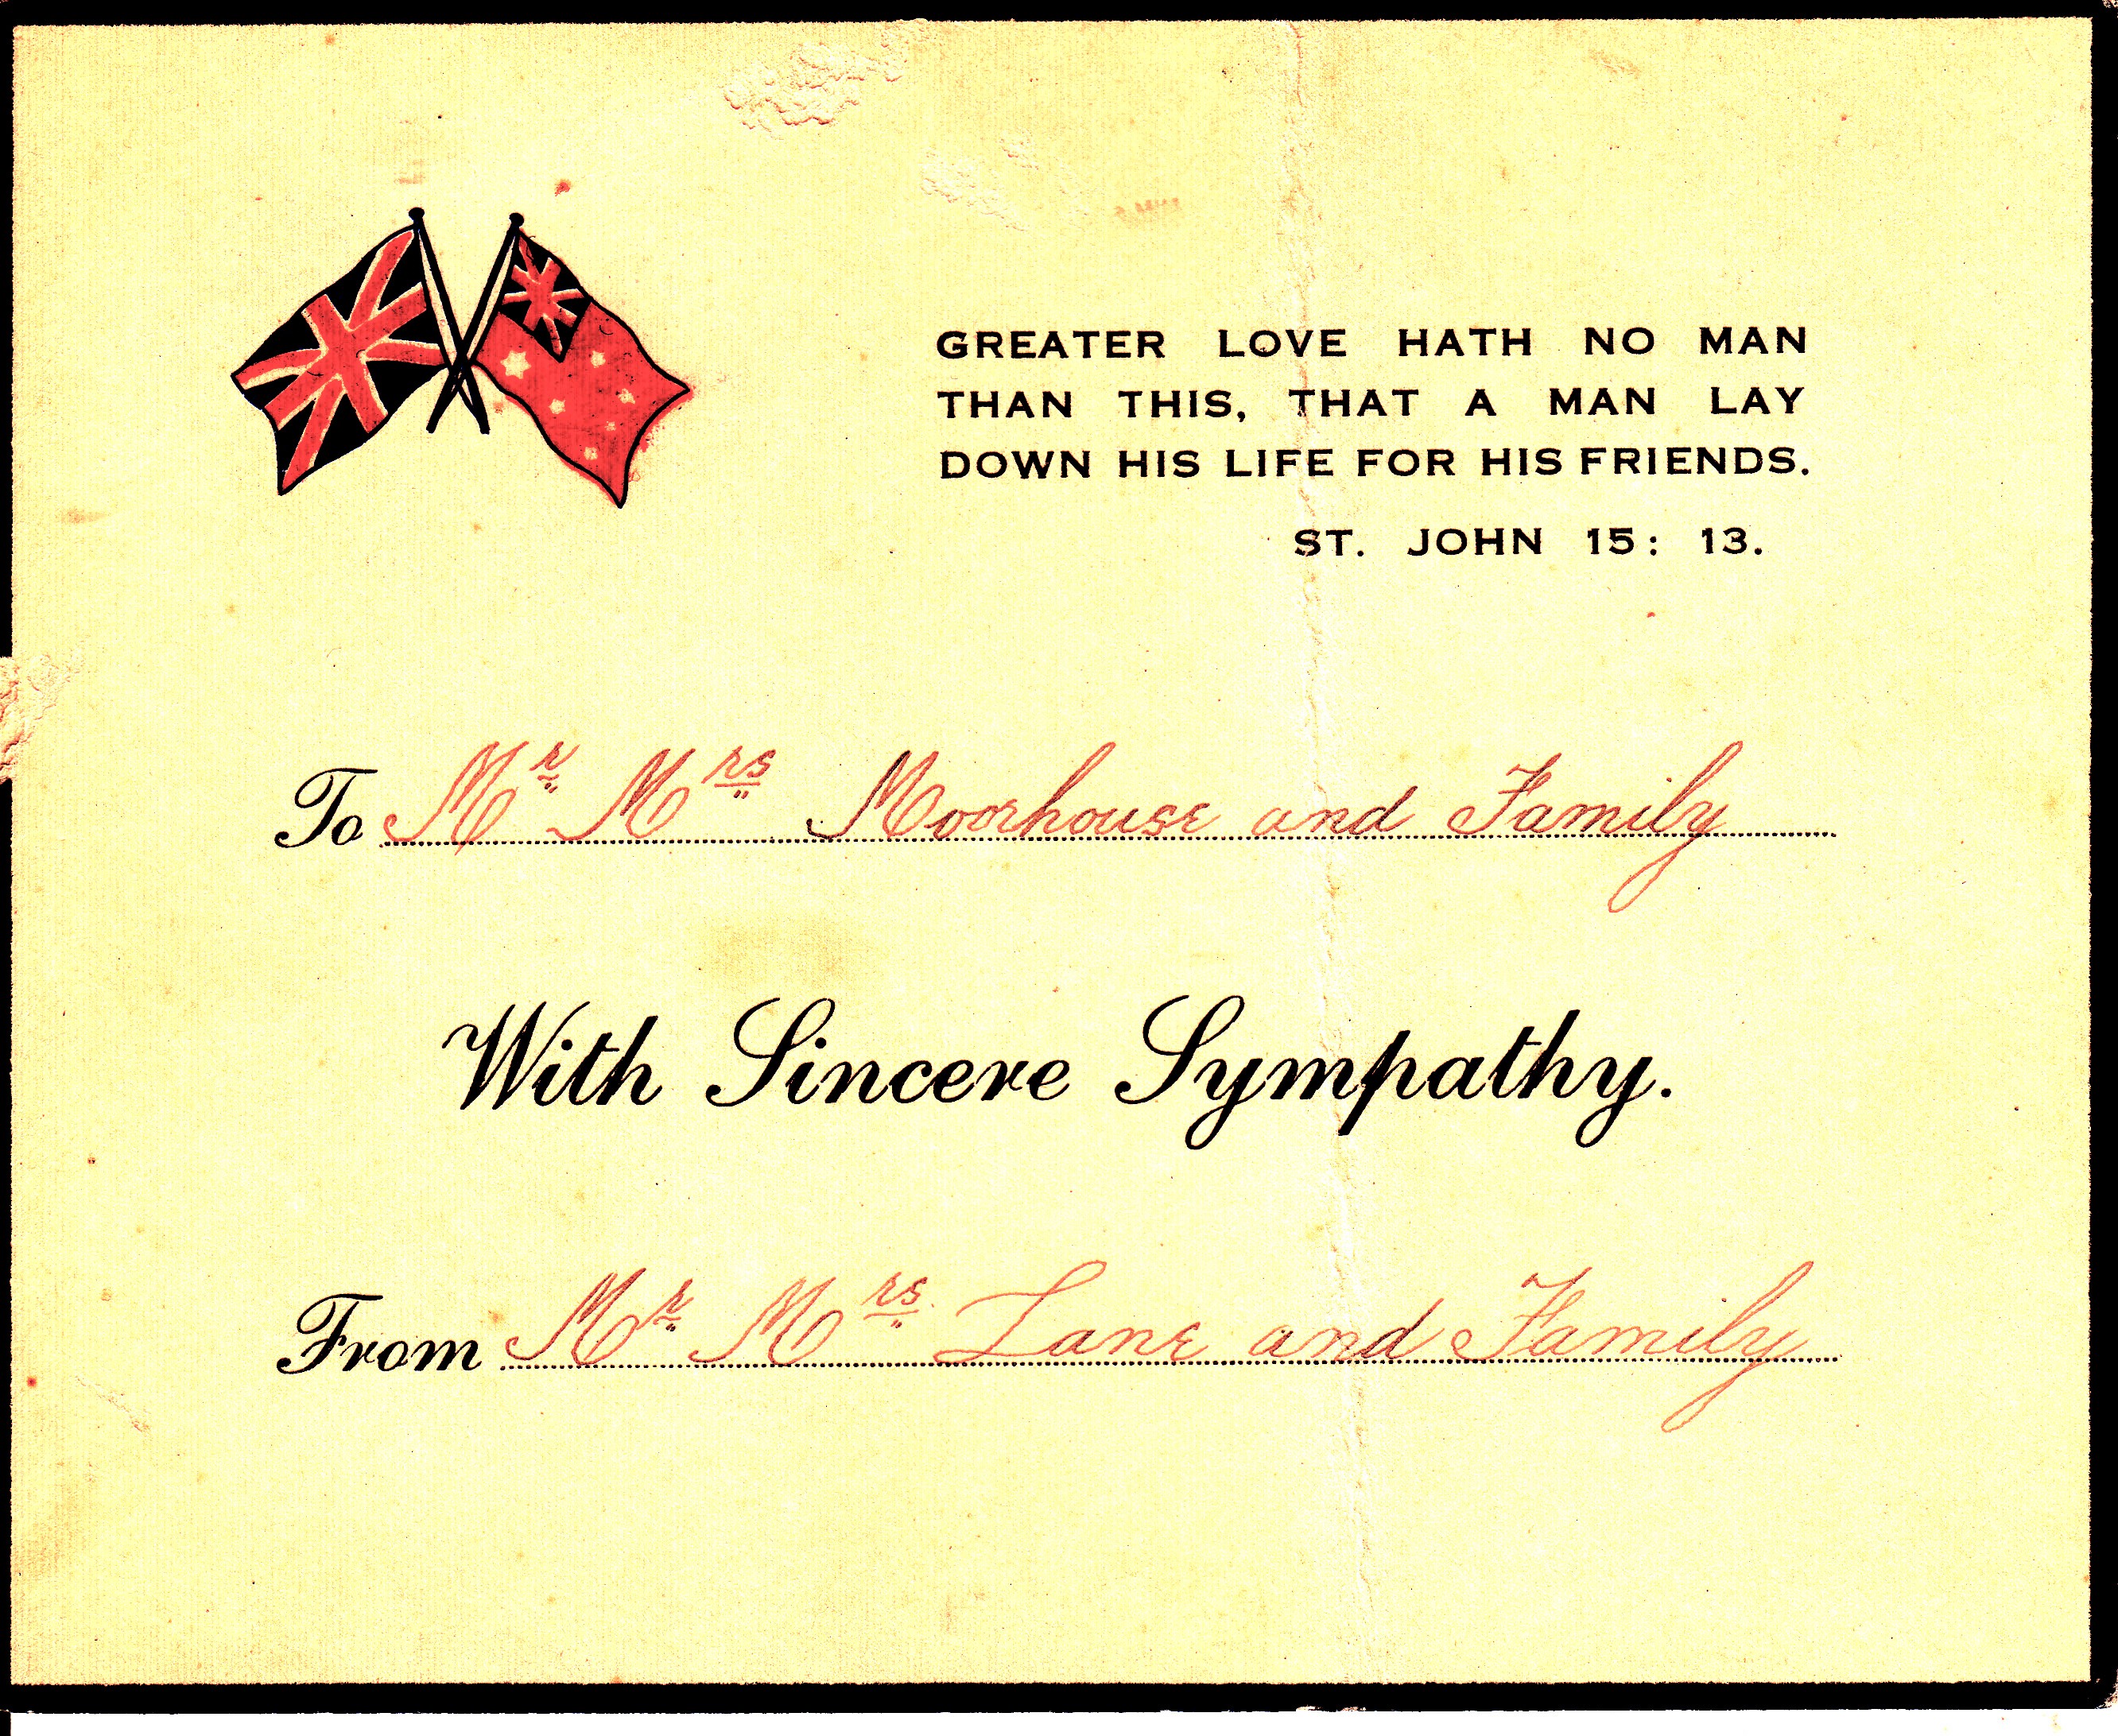 GREATER LOVE HATH NO MAN
THAN THIS, THAT A MAN LAY
DOWN HIS LIFE FOR HIS FRIENDS.
ST. JOHN 15: 13.
To Mr Mrs Moorhouse and Family
With Sincere Sympathy.
From Mr Mrs Lane and Family